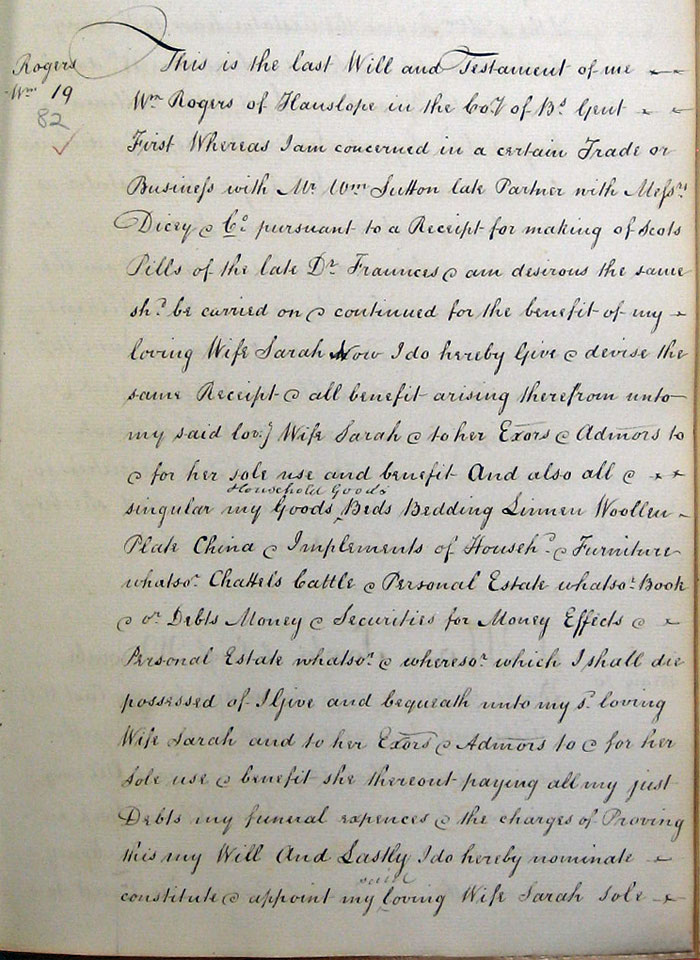 Rogers
Wm 19
82
This is the last Will and Testament of me
Wm Rogers of Hanslope in the Coty of Bs Gent
First Whereas I am concerned in a certain Trade or
Business with Mr Wm Sutton late Partner with Messrs
Dicey & Co pursuant to a Receipt for making of Scots
Pills of the late Dr Fraunces & am desirous the same
shd be carried on & continued for the benefit of my
loving Wife Sarah Now I do hereby Give & devise the
same Receipt & all benefit arising therefrom unto
my said lovg Wife Sarah & to her Exors & Admors to
& for her sole use and benefit And also all &
Household Goods
singular my Goods Beds Bedding Linnen Woollen
Plate China & Implements of Househd & Furniture
whatsor Chattels Cattle & Personal Estate whatsor Book
& or Debts Money & Securities for Money Effects &
Personal Estate whatsor & wheresor which I shall die
possessed of I Give and bequeath unto my sd loving
Wife Sarah and to her Exors & Admors to & for her
sole use & benefit she thereout paying all my just
Debts my funeral expences & the charges of Proving
this my Will And Lastly I do hereby nominate
said
constitute & appoint my loving Wife Sarah sole